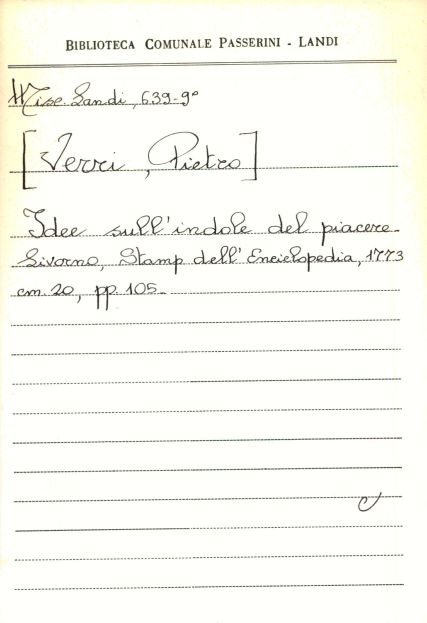 BIBLIOTECA COMUNALE PASSERINI - LANDI
Misc. Landi, 639-9°
[Verri, Pietro]
Idee sull'indole del piacere.
Livorno, Stamp dell'Enciclopedia, 1773
cm. 20, pp. 105.